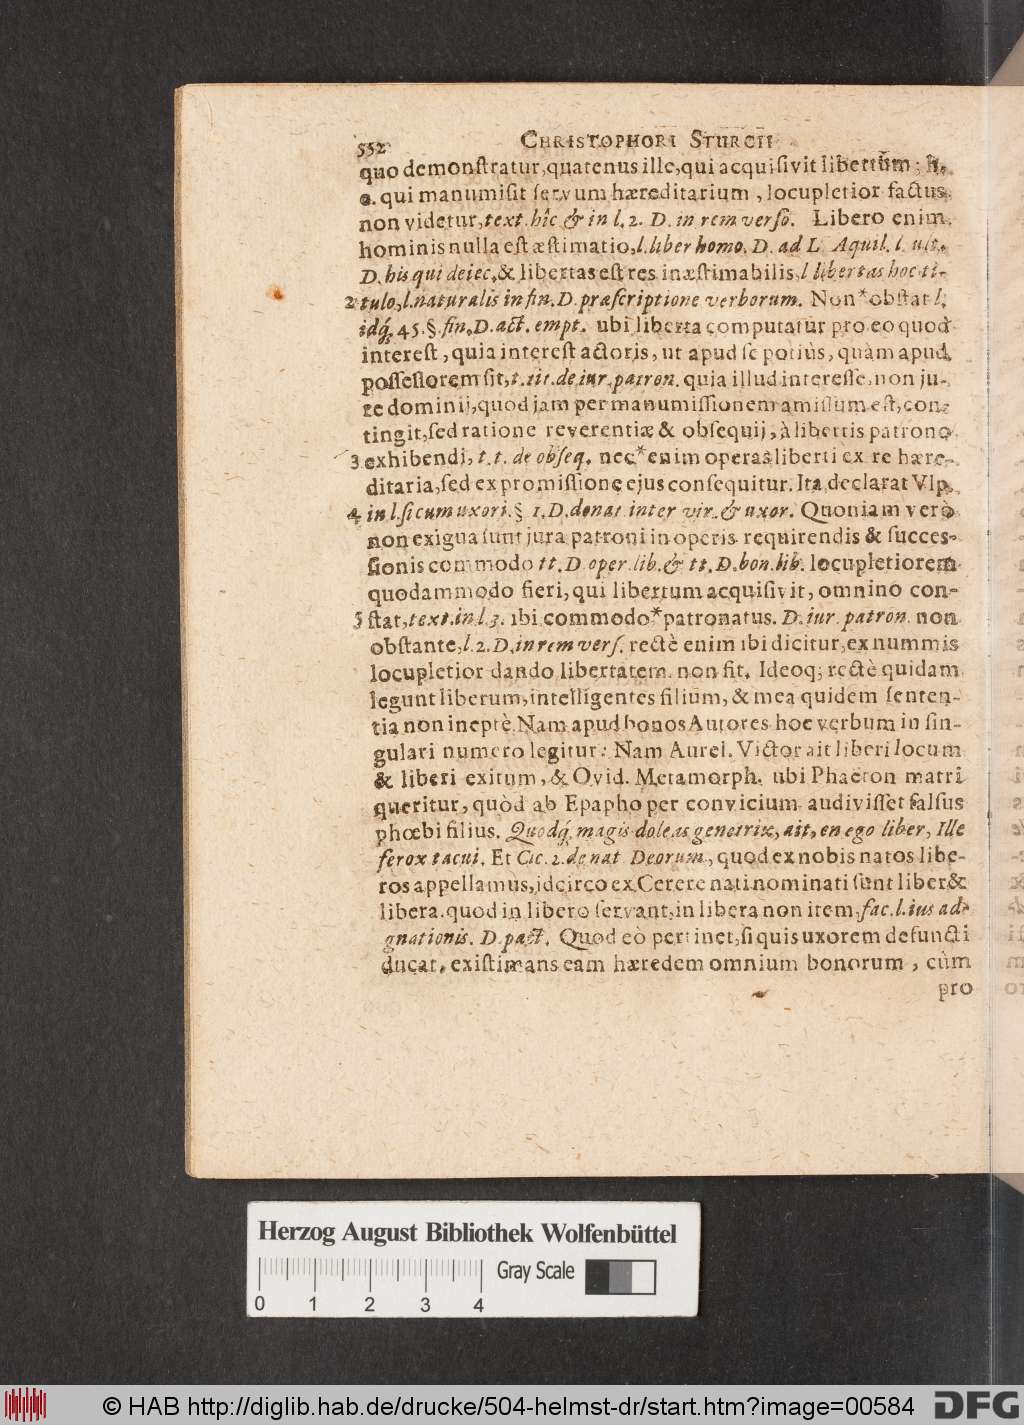 552 CHRISTOPHORI STURCII
quo demonſtratur, quatenus ille, qui acquiſivit libertum; h.
e. qui manumiſit ſervum hæreditarium, locupletior factus
non videtur, text. hîc & in l. 2. D. in rem verſo. Libero enim
hominis nulla eſt æſtimatio, l. liber homo. D. ad L. Aquil. l. ult.
D. his qui deiec. & libertas eſt res inæſtimabilis, l libertas hoc ti-
2 tulo, l. naturalis in fin. D. præſcriptione verborum. Non * obſtat l.
idq́; 45. §. fin. D. act. empt. ubi liberta computatur pro eo quod
intereſt, quia intereſt actoris, ut apud ſe potiùs, quàm apud
poſſeſſorem ſit, t. tit. de iur. patron. quia illud intereſſe, non ju-
re dominij, quod jam per manumiſſionem amiſſum eſt, con-
tingit, ſed ratione reverentiæ & obſequij, à libertis patrono
3 exhibendi, t. t. de obſeq. nec * enim operas liberti ex re hære-
ditaria, ſed ex promiſſione ejus conſequitur. Ita declarat Vlp.
4 in l. ſi cum uxori. § 1. D. donat. inter vir. & uxor. Quoniam verò
non exigua ſunt jura patroni in operis requirendis & ſucces-
ſionis commodo tt. D oper. lib. & tt. D. bon. lib. locupletiorem
quodammodo fieri, qui libertum acquiſivit, omnino con-
5 ſtat, text. in l. 3. ibi commodo * patronatus. D. iur. patron. non
obſtante, l. 2. D. in rem verſ. rectè enim ibi dicitur, ex nummis
locupletior dando libertatem non fit. Ideoq; rectè quidam
legunt liberum, intelligentes filium, & mea quidem ſenten-
tia non ineptè. Nam apud bonos Autores hoc verbum in ſin-
gulari numero legitur: Nam Aurel. Victor ait liberi locum
& liberi exitum, & Ovid. Metamorph. ubi Phaëton matri
queritur, quòd ab Epapho per convicium audiviſſet falſus
phœbi filius. Quodq́; magis doleas genetrix, ait, en ego liber, Ille
ferox tacui. Et Cic. 2. de nat Deorum, quod ex nobis natos libe-
ros appellamus, idcirco ex Cerere nati nominati ſunt liber &
libera. quod in libero ſervant, in libera non item, fac. l. ius ad-
gnationis. D. pact. Quod eò pertinet, ſi quis uxorem defuncti
ducat, exiſtimans eam hæredem omnium bonorum, cùm
pro
Herzog August Bibliothek Wolfenbüttel
Gray Scale
0 1 2 3 4
© HAB http://diglib.hab.de/drucke/504-helmst-dr/start.htm?image=00584
DFG